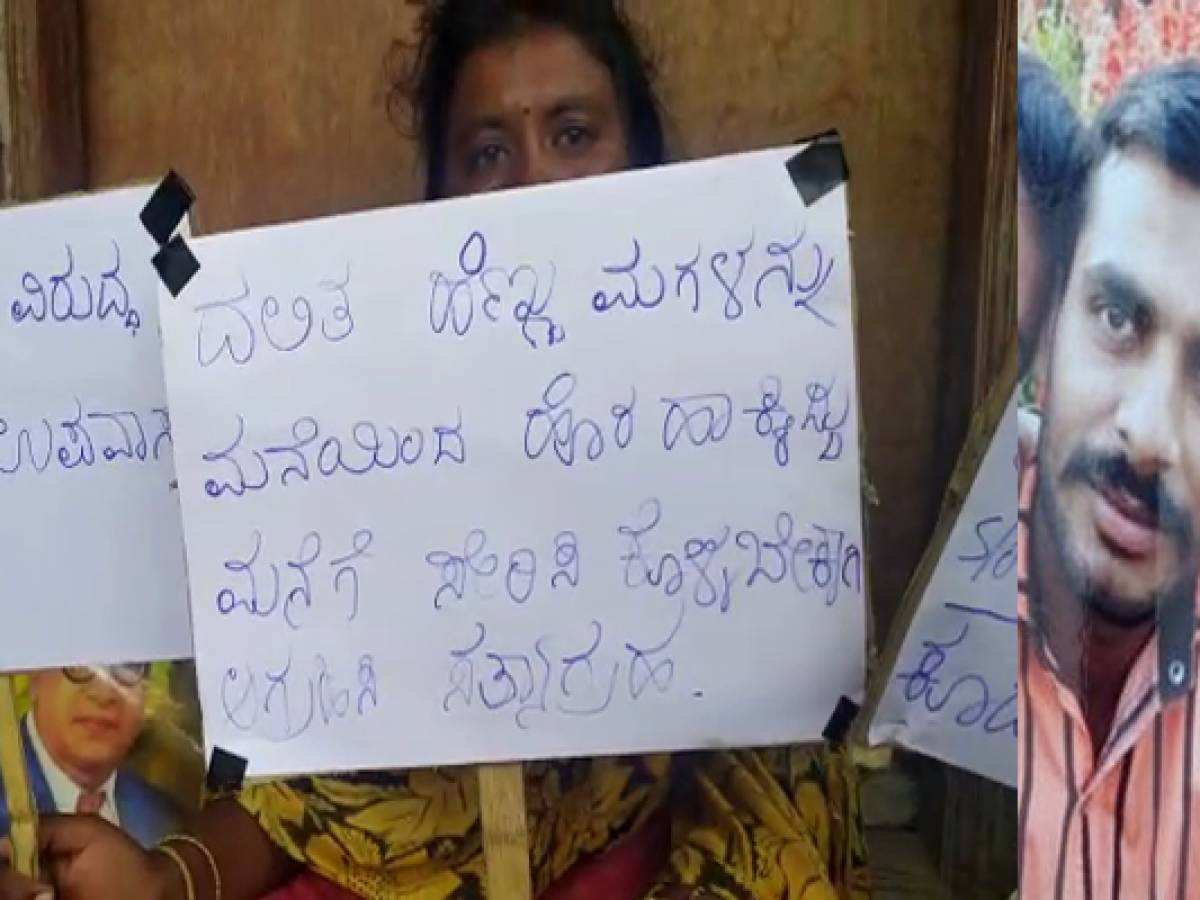 ವಿರುದ್ಧ
ಉಪವಾಸ
ದಲಿತ ಹೆಣ್ಣು ಮಗಳನ್ನು
ಮನೆಯಿಂದ ಹೊರ ಹಾಕ್ಕಿದ್ದು
ಮನೆಗೆ ಸೇರಿಸಿ ಕೊಳ್ಳಬೇಕಾಗಿ
ಆಗ್ರಹಿಸಿ ಸತ್ಯಾಗ್ರಹ.